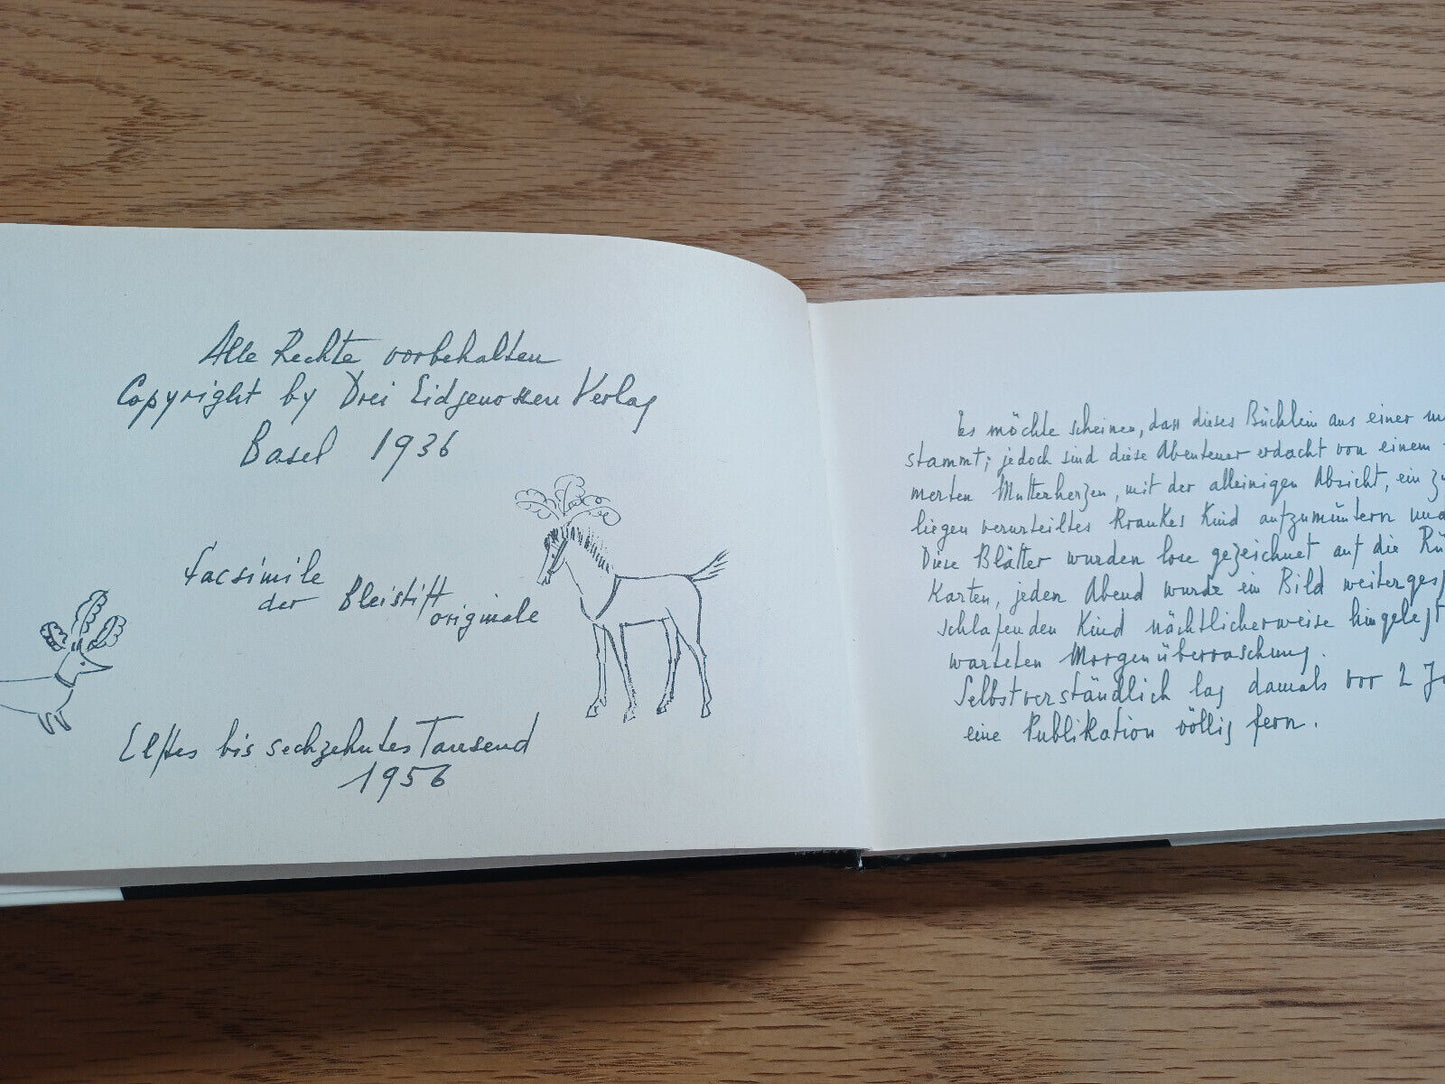 Alle Rechte vorbehalten
Copyright by Drei Eidgenossen Verlag
Basel 1936
Facsimile
der Bleistift
originale
Elftes bis sechzehntes Tausend
1956
Es möchte scheinen, dass dieses Büchlein aus einer
stammt; jedoch sind diese Abenteuer erdacht von einem
merten Mutterherzen, mit der alleinigen Absicht, ein
liegen verurteiltes krankes Kind aufzumuntern
Diese Blätter wurden lose gezeichnet auf die
Karten, jeden Abend wurde ein Bild
schlafenden Kind nächtlicherweise hingelegt
warteten Morgenüberraschung.
Selbstverständlich lag damals vor 2
eine Publikation völlig fern.